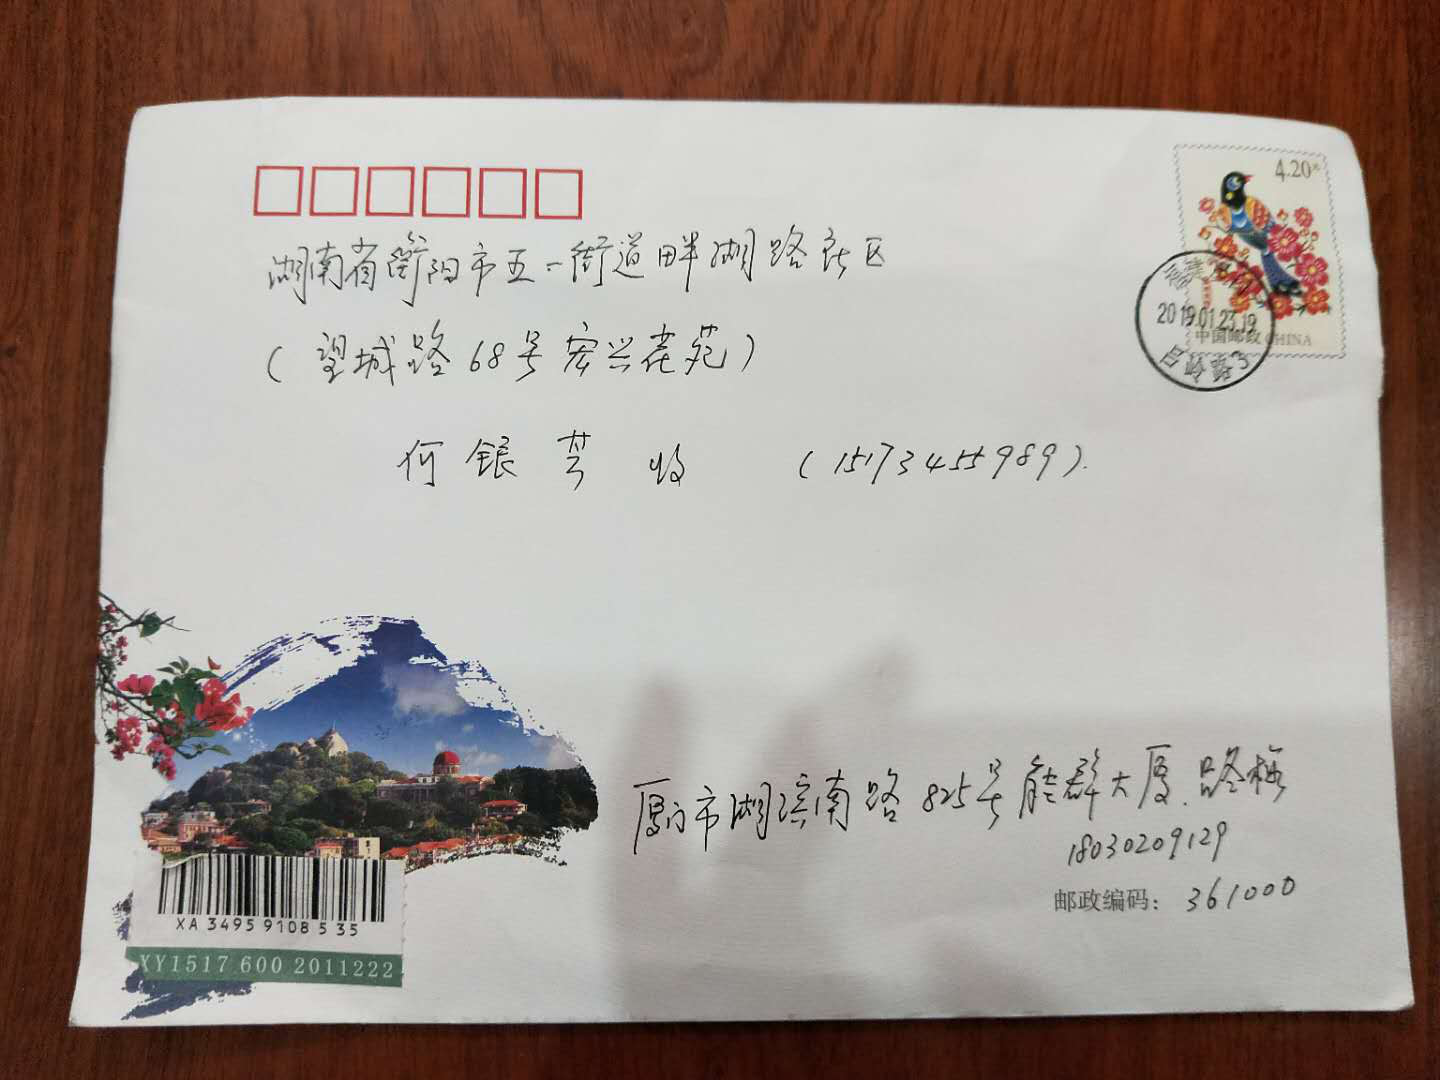 4.20元
湖南省衡阳市五一街道畔湖路社区
(望城路68号宏兴花苑)
何银芳 收 (15173455989).
2019.01.23.19
中国邮政 CHINA
厦门市湖滨南路825号能群大厦.路梅
18030209129
邮政编码: 361000
XA 3495 9108 5 35
XY1517 600 2011222